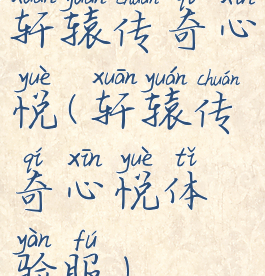 xuān yuán chuán qí xīn
轩辕传奇心
yuè xuān yuán chuán
悦(轩辕传
qí xīn yuè tǐ
奇心悦体
yàn fú
验服)